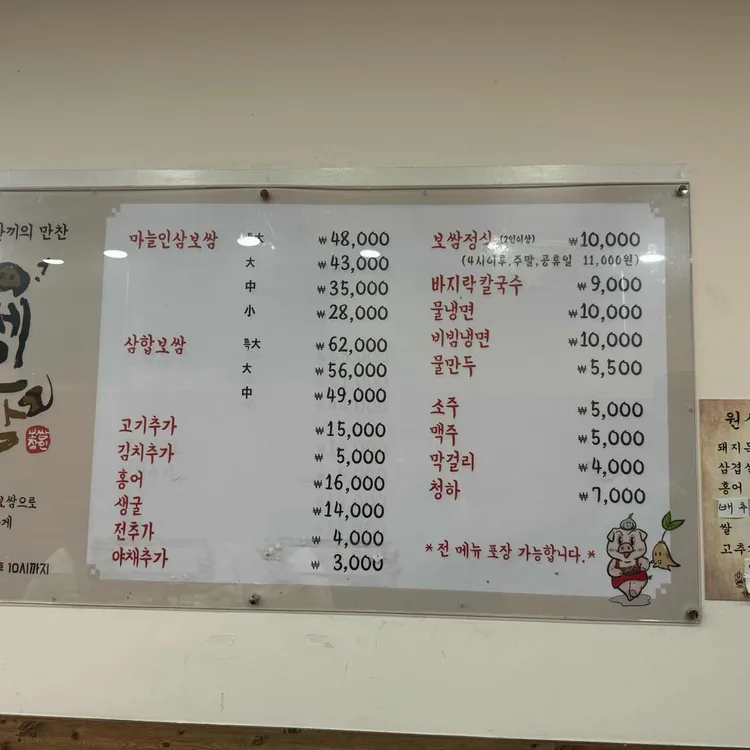 끼의 만찬
보쌈으로
게
10시까지
마늘인삼보쌈 大 ₩48,000
大 ₩43,000
中 ₩35,000
小 ₩28,000
삼합보쌈 特大 ₩62,000
大 ₩56,000
中 ₩49,000
고기추가 ₩15,000
김치추가 ₩5,000
홍어 ₩16,000
생굴 ₩14,000
전추가 ₩4,000
야채추가 ₩3,000
보쌈정식 (2인이상) ₩10,000
(4시이후,주말,공휴일 11,000원)
바지락칼국수 ₩9,000
물냉면 ₩10,000
비빔냉면 ₩10,000
물만두 ₩5,500
소주 ₩5,000
맥주 ₩5,000
막걸리 ₩4,000
청하 ₩7,000
*전 메뉴 포장 가능합니다.*
원
돼지
삼겹
홍어
배추
쌀
고추